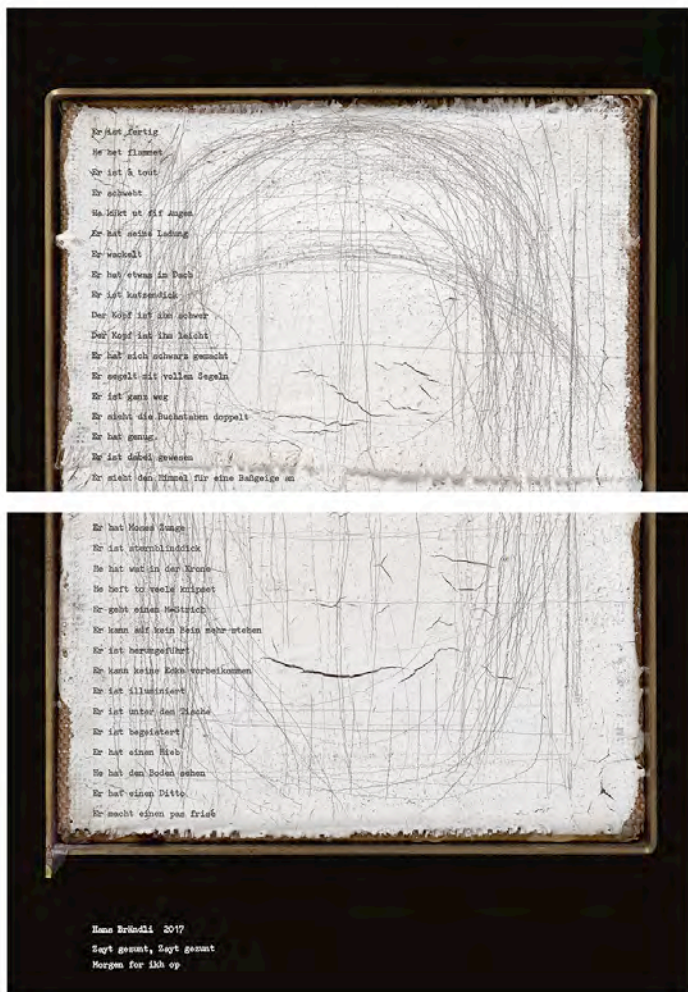 Er ist fertig
He het flammet
Er ist à tout
Er schwebt
He kikt ut fif Augen
Er hat seine Ladung
Er wackelt
Er hat etwas im Dach
Er ist katzendick
Der Kopf ist ihm schwer
Der Kopf ist ihm leicht
Er hat sich schwarz gemacht
Er segelt mit vollen Segeln
Er ist ganz weg
Er sieht die Buchstaben doppelt
Er hat genug.
Er ist dabei gewesen
Er sieht den Himmel für eine Baßgeige an
Er hat Moses Zunge
Er ist sternblinddick
He hat wat in der Krone
He heft to veele knipset
Er geht einen M-Strich
Er kann auf kein Bein mehr stehen
Er ist herumgeführt
Er kann keine Ecke vorbeikommen
Er ist illuminiert
Er ist unter dem Tische
Er ist begeistert
Er hat einen Hieb
He hat den Boden sehen
Er hat einen Ditto
Er macht einen pas frisé
Hans Brändli 2017
Zayt gezunt, Zayt gezunt
Morgen for ikh op